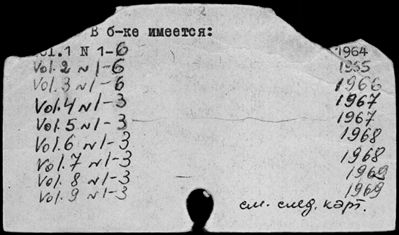 В б-ке имеется:
Vol. 1 N 1-6 1964
Vol. 2 N 1-6 1965
Vol. 3 N 1-6 1966
Vol. 4 N 1-3 1967
Vol. 5 N 1-3 1967
Vol. 6 N 1-3 1968
Vol. 7 N 1-3 1968
Vol. 8 N 1-3 1969
Vol. 9 N 1-3 1969
см. след. карт.